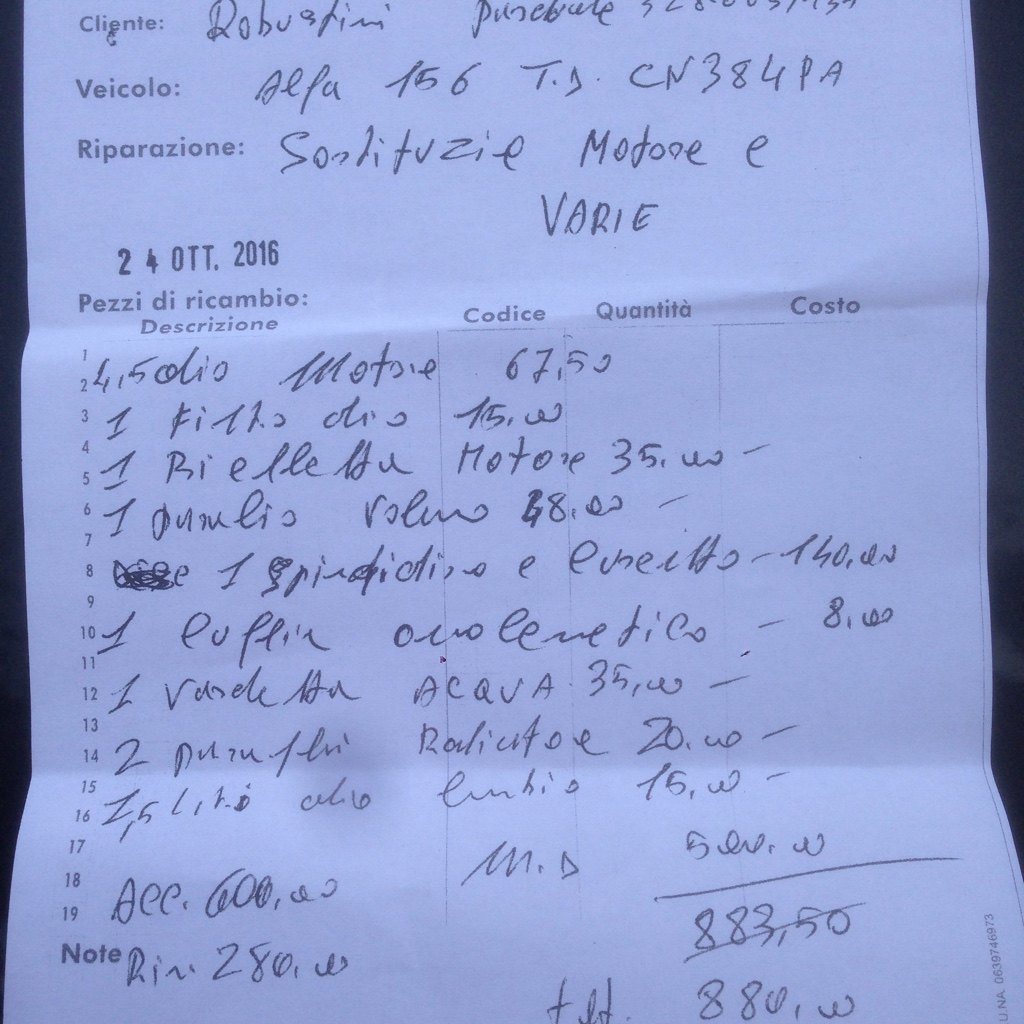 Cliente:
Veicolo: Alfa 156 T.D. CN384PA
Riparazione: Sostituzie Motore e
VARIE
24 OTT. 2016
Pezzi di ricambio:
Descrizione Codice Quantità Costo
1
2 4,5 olio Motore 67,50
3 1 Filtro olio 15,00
4
5 1 Bielletta Motore 35,00 -
6 1 48,00 -
7
8 1 e - 140,00
9
10 1 cuffia - 8,00
11
12 1 Vaschetta ACQUA 35,00 -
13
14 2 Radiatore 20,00 -
15
16 1,5 Litri olio cambio 15,00 -
17 M.D 500,00
18
19 Acc. 600,00
883,50
Note Rim. 280,00
tot. 880,00
U.NA. 0639746973